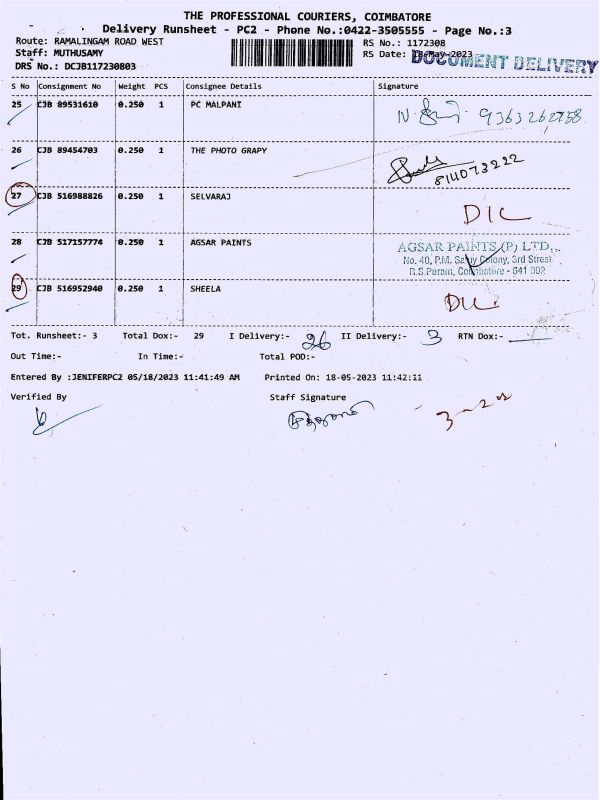 THE PROFESSIONAL COURIERS, COIMBATORE
Delivery Runsheet - PC2 - Phone No.:0422-3505555 - Page No.:3
Route: RAMALINGAM ROAD WEST RS No.: 1172308
Staff: MUTHUSAMY RS Date: 18-May-2023 DOCUMENT DELIVERY
DRS No.: DCJB117230803
S No Consignment No Weight PCS Consignee Details Signature
25 CJB 89531610 0.250 1 PC MALPANI 9363262758
26 CJB 89454703 0.250 1 THE PHOTO GRAPY
27 CJB 516988826 0.250 1 SELVARAJ D1L
28 CJB 517157774 0.250 1 AGSAR PAINTS AGSAR PAINTS (P) LTD.,
No. 40, P.M. Samy Colony, 3rd Street
R.S.Puram, Coimbatore - 641 002
29 CJB 516952940 0.250 1 SHEELA
Tot. Runsheet:- 3 Total Dox:- 29 I Delivery:- 26 II Delivery:- 3 RTN Dox:-
Out Time:- In Time:- Total POD:-
Entered By :JENIFERPC2 05/18/2023 11:41:49 AM Printed On: 18-05-2023 11:42:11
Verified By Staff Signature